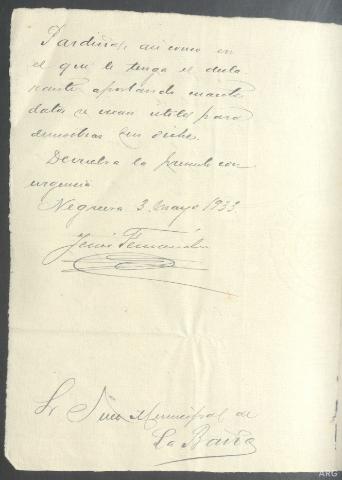 Pardiñas asi como en
el que lo tenga el decla
rante aportando cuantos
datos sean utiles para
demostrar
Devuelva la presente con
urgencia
Negreira 3 Mayo 1933
Jesús Fernández
Sr Juez Municipal de
La Baña
ARG